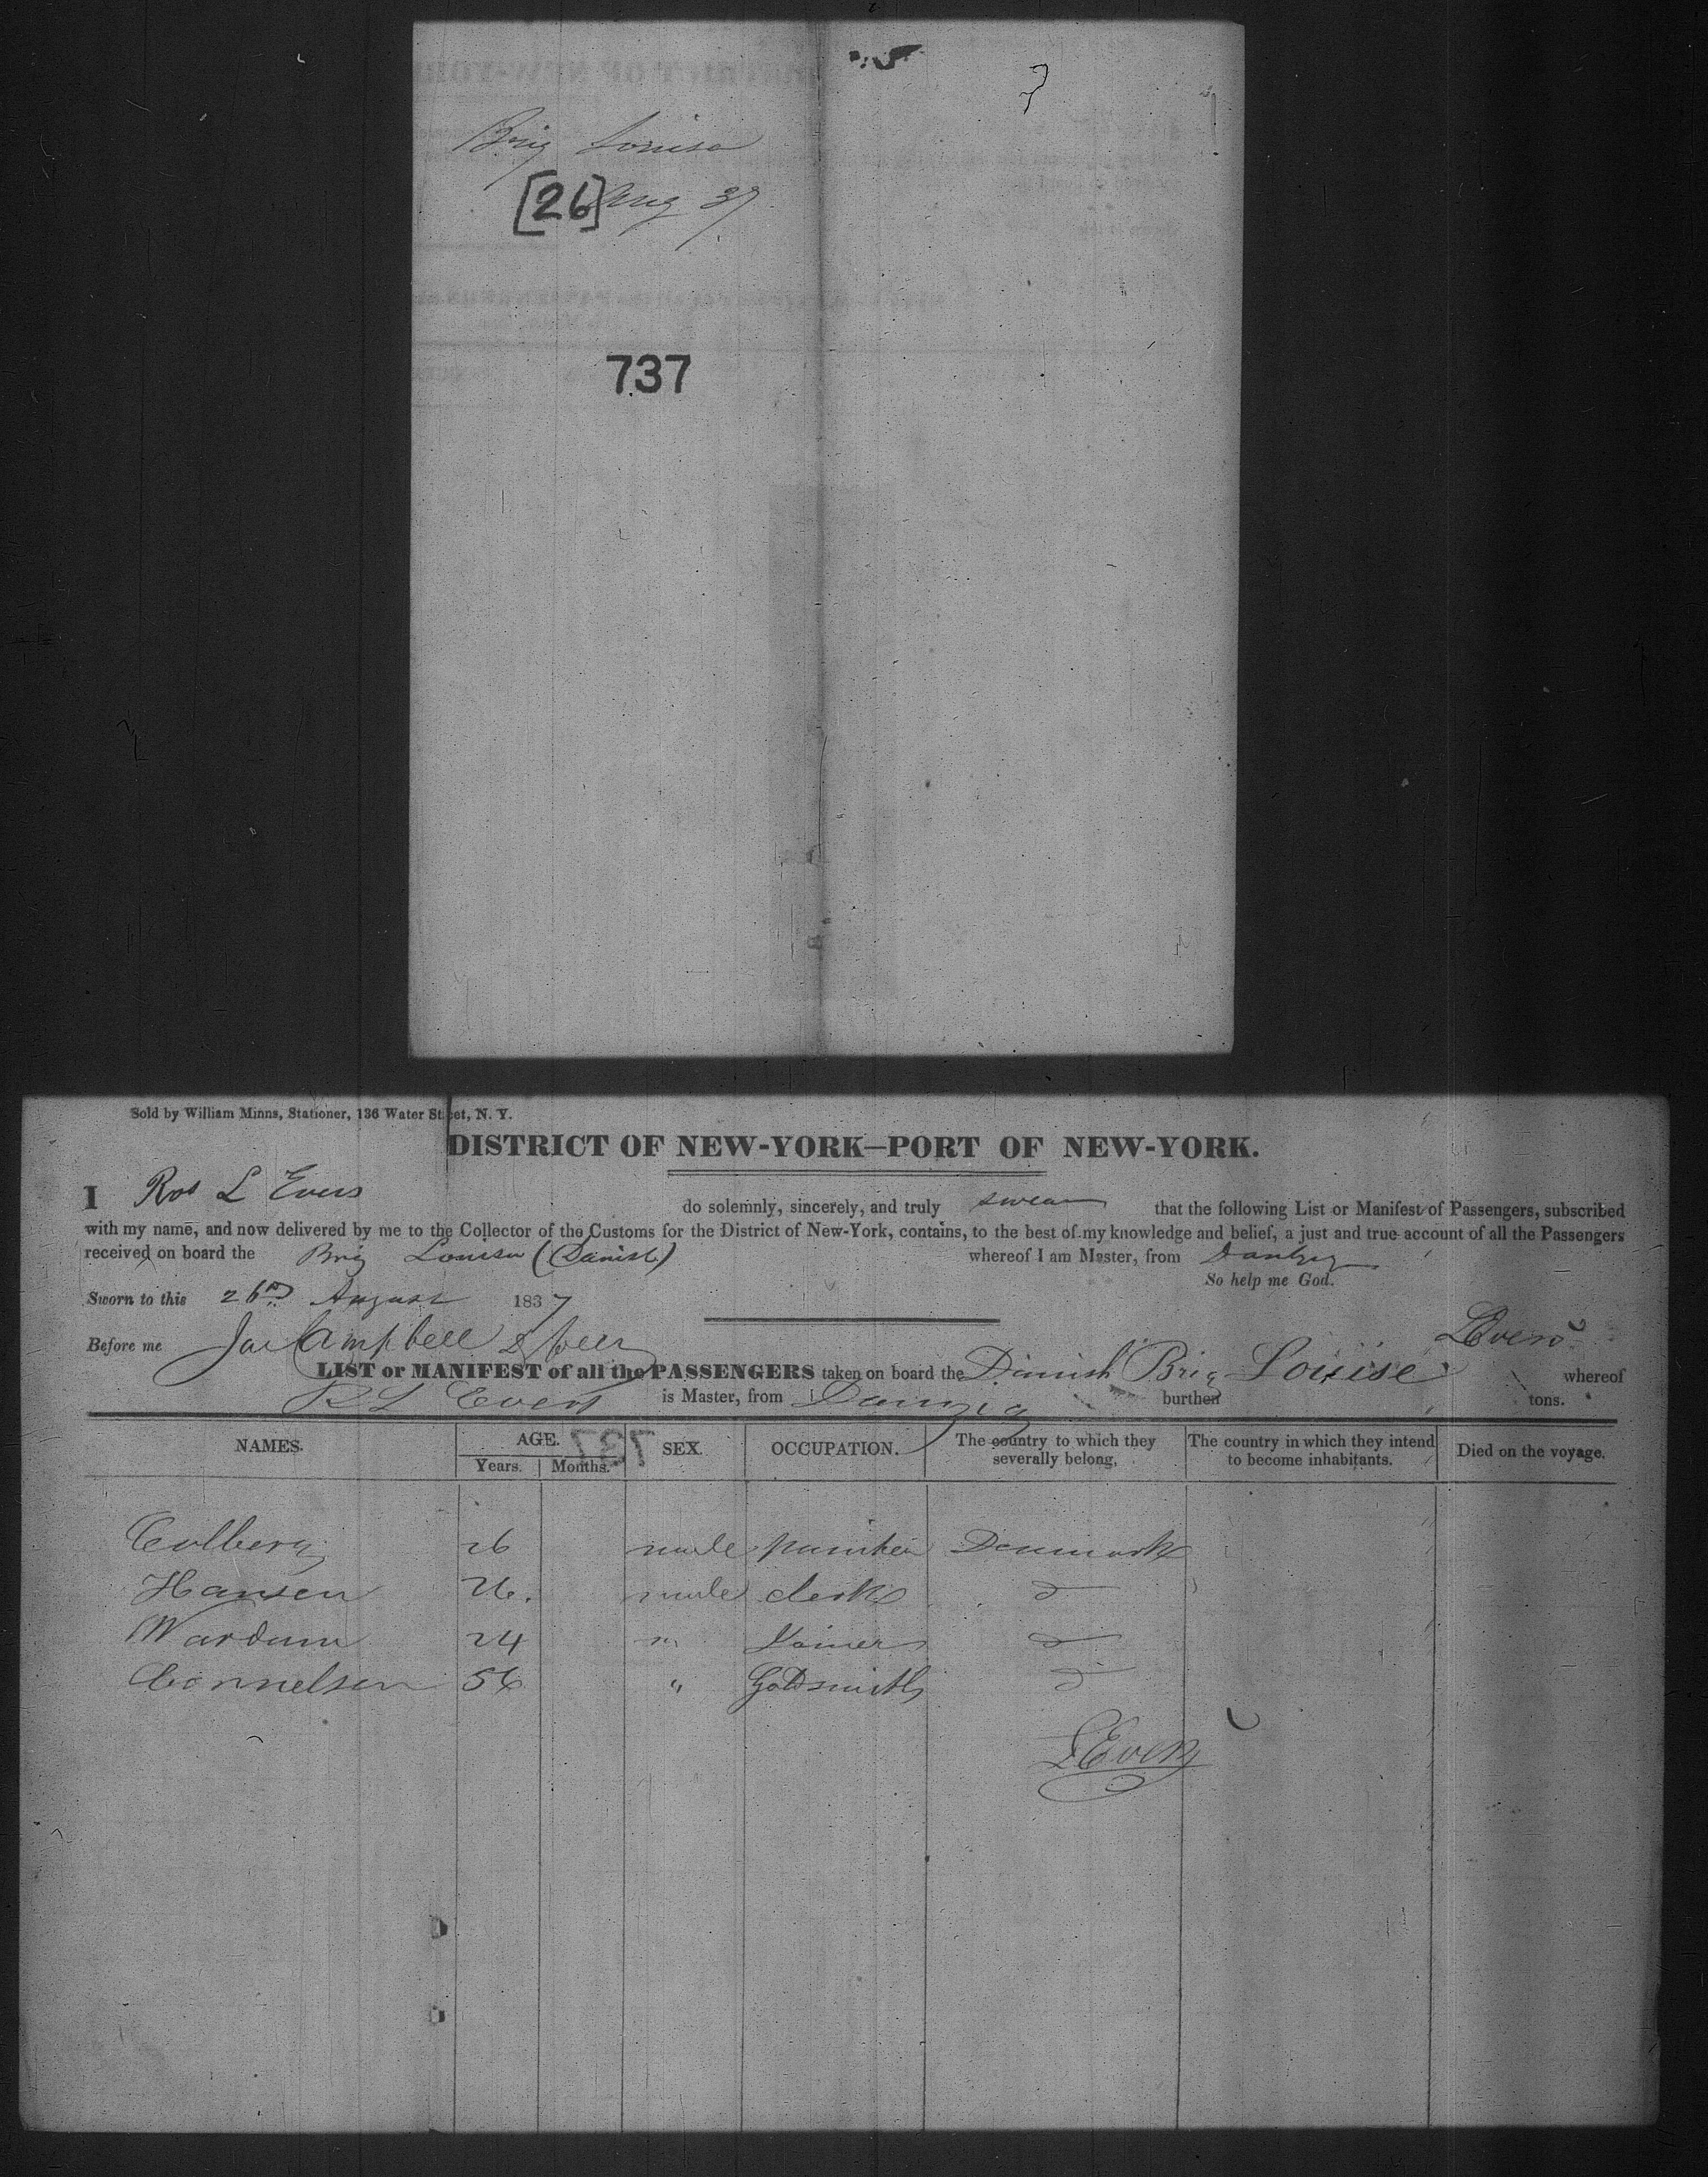 Brig Louisa
[26] Aug 37
737
Sold by William Minns, Stationer, 136 Water Street, N. Y.
DISTRICT OF NEW-YORK—PORT OF NEW-YORK.
I Ros L Evers do solemnly, sincerely, and truly swear that the following List or Manifest of Passengers, subscribed
with my name, and now delivered by me to the Collector of the Customs for the District of New-York, contains, to the best of my knowledge and belief, a just and true account of all the Passengers
received on board the Brig Louisa (Danish) whereof I am Master, from Dantzig
So help me God.
Sworn to this 26th August 1837
L Evers
Before me Jas Campbell
LIST or MANIFEST of all the PASSENGERS taken on board the Danish Brig Louise whereof
R L Evers is Master, from Danzig burthen tons.
NAMES. AGE. SEX. OCCUPATION. The country to which they severally belong, The country in which they intend to become inhabitants. Died on the voyage.
Years. Months.
Colberg 26 male painter Denmark
Hansen 26. male clerk do
Wardum 24 " Joiner do
Cornelsen 56 " Goldsmith do
L Evers